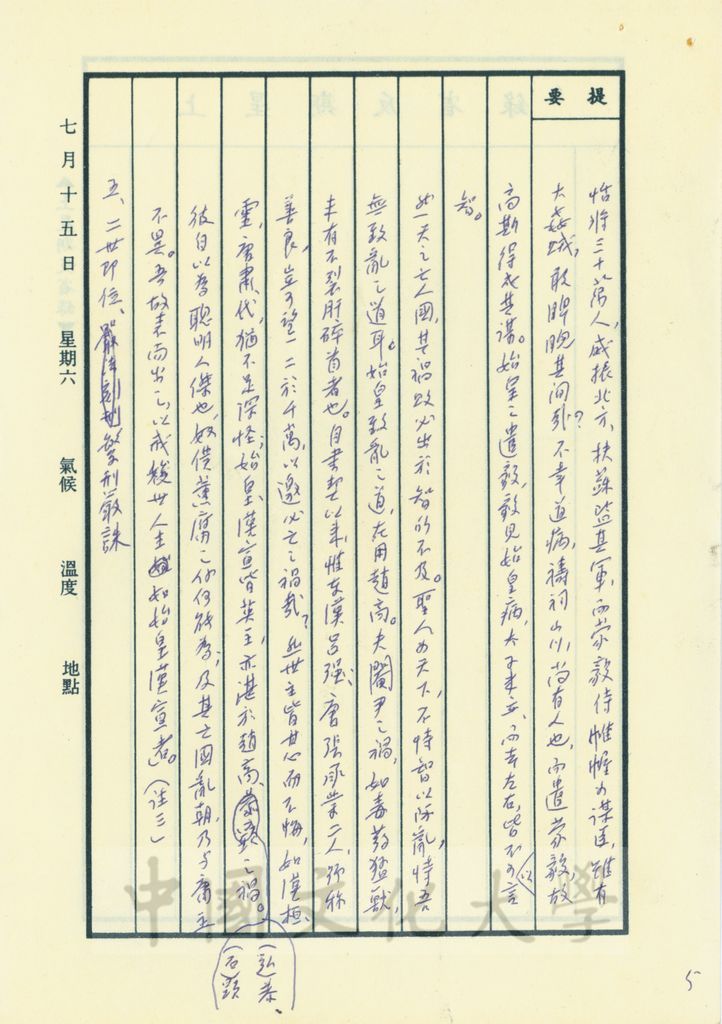 提要
恬將三十萬人,威振北方,扶蘇監其軍,而蒙毅侍帷幄為謀臣,雖有
大姦賊,敢睥睨其間哉?不幸道病,禱祠山川,尚有人也,而遣蒙毅,故
高斯得成其謀。始皇之遣毅,毅見始皇病,太子未立,而去左右,皆不可以言
智。
然天之亡人國,其禍敗必出於智所不及。聖人為天下,不恃智以防亂,恃吾
無致亂之道耳。始皇致亂之道,在用趙高。夫閹尹之禍,如毒藥猛獸,
未有不裂肝碎首者也。自書契以來,惟東漢呂强、唐張承業二人,號稱
善良,豈可望一二於千萬,以邀必亡之禍哉?然世主皆甘心而不悔,如漢桓、
靈,唐肅、代,猶不足深怪;始皇、漢宣皆英主,亦湛於趙高、恭、顯之禍。
(弘恭、石顯)
彼自以為聰明人傑也,奴僕薰腐之餘何能為,及其亡國亂朝,乃與庸主
不異。吾故表而出之,以戒後世人主如始皇漢宣者。(注三)
五、二世即位、繁刑嚴誅
七月十五日 星期六 氣候 溫度 地點
5
中國文化大學